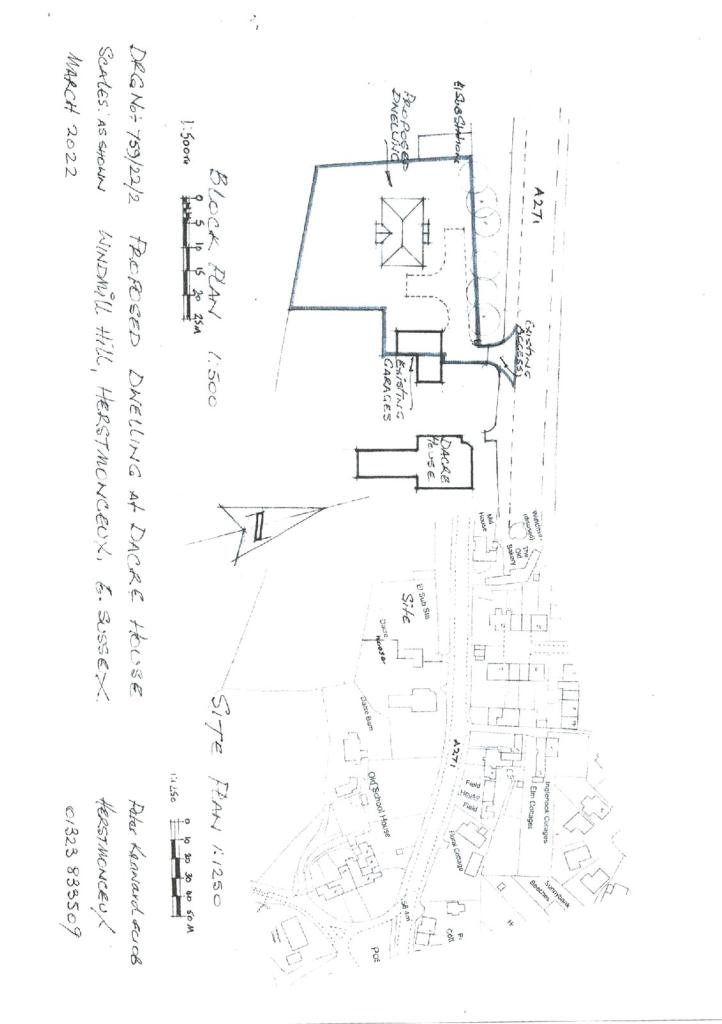 A271
El Sub Station
PROPOSED
DWELLING
EXISTING
ACCESS
EXISTING
GARAGES
DACRE
HOUSE
BLOCK PLAN 1:500
1:500
0 5 10 15 20 25M
Windmill
(disused)
Mill
House
The
Old
Bakery
El Sub Sta
Site
Dacre
House
Dacre Barn
Old School House
A271
Field
House
Field
Elm Cottages
Inglenook Cottages
Floral Cottage
Sunnybank
Beeches
H
Cott
SITE PLAN 1:1250
1:1250
0 10 20 30 40 50M
DRG No: 759/22/2 PROPOSED DWELLING At DACRE HOUSE
SCALES: AS SHOWN WINDMILL HILL, HERSTMONCEUX, E. SUSSEX.
MARCH 2022
HERSTMONCEUX
01323 833509